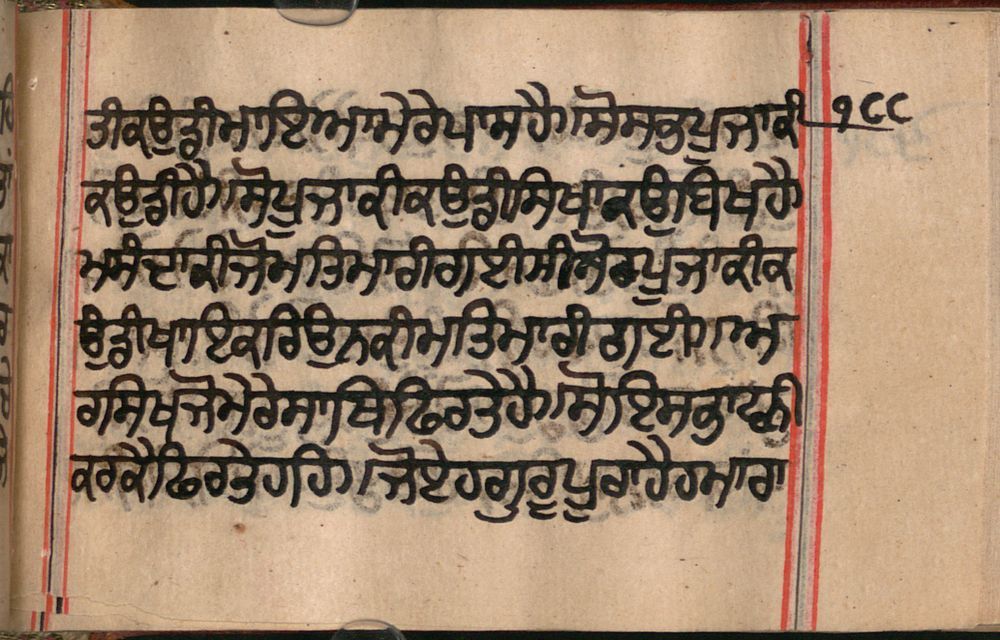 ਤੀਕਉਡੀਮਾਇਆਮੇਰੇਪਾਸਹੈ॥ਸੋਸਭਪੂਜਾਕੀ ੧੮੮
ਕਉਡੀਹੈ॥ਸੋਪੂਜਾਕੀਕਉਡੀਸਿਖਾਕਉਬਿਖਹੈ
ਮਸੰਦਾਕੀਜੋਮਤਿਮਾਰੀਗਈਸੀਸੋਭਪੂਜਾਕੀਕ
ਉਡੀਖਾਇਕਰਿਉਨਕੀਮਤਿਮਾਰੀਗਈ॥ਅਮ
ਰਸਿਖਜੋਮੇਰੇਸਾਥਿਫਿਰਤੇਹੈ॥ਸੋਇਸਭਾਠੀ
ਕਰਕੈਫਿਰਤੇਹਹਿ॥ਜੋਏਹਗੁਰੂਪੂਰਾਹੈਹਮਾਰਾ